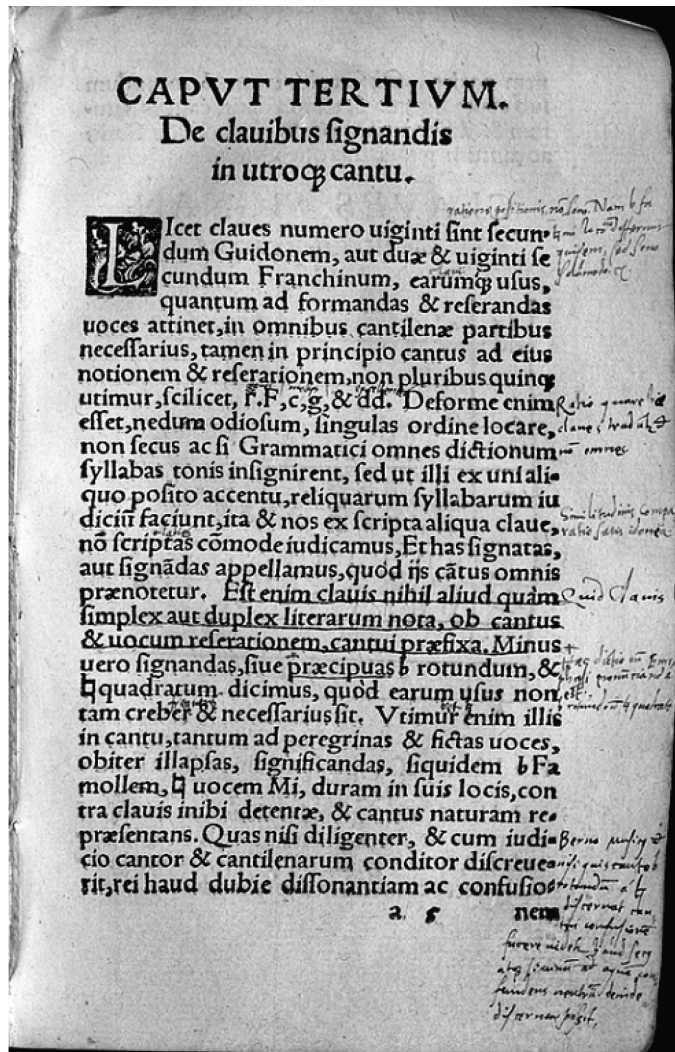 CAPVT TERTIVM.
De clauibus signandis
in utroqꝫ cantu.
LIcet claues numero uiginti sint secun-
dum Guidonem, aut duæ & uiginti se
cundum Franchinum, earumqꝫ usus,
quantum ad formandas & reserandas
uoces attinet, in omnibus cantilenæ partibus
necessarius, tamen in principio cantus ad eius
notionem & reserationem, non pluribus quinqꝫ
utimur, scilicet, Γ. F, c, g, & dd. Deforme enim
esset, nedum odiosum, singulas ordine locare,
non secus ac si Grammatici omnes dictionum
syllabas tonis insignirent, sed ut illi ex uni ali-
quo posito accentu, reliquarum syllabarum iu
diciũ faciunt, ita & nos ex scripta aliqua claue,
nõ scriptas cõmode iudicamus, Et has signatas,
aut signãdas appellamus, quòd ijs cãtus omnis
prænotetur. Est enim clauis nihil aliud quàm
simplex aut duplex literarum nota, ob cantus
& uocum reserationem, cantui præfixa. Minus
uero signandas, siue præcipuas b rotundum, &
♮ quadratum dicimus, quòd earum usus non
tam creber & necessarius sit. Vtimur enim illis
in cantu, tantum ad peregrinas & fictas uoces,
obiter illapsas, significandas, siquidem b Fa
mollem, ♮ uocem Mi, duram in suis locis, con
tra clauis inibi detentæ, & cantus naturam re-
præsentans. Quas nisi diligenter, & cum iudi-
cio cantor & cantilenarum conditor discreue-
rit, rei haud dubie dissonantiam ac confusio-
a 5 nem
Quid Clauis